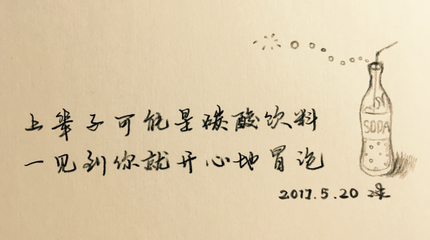 上辈子可能是碳酸饮料
一见到你就开心地冒泡
SODA
2017.5.20